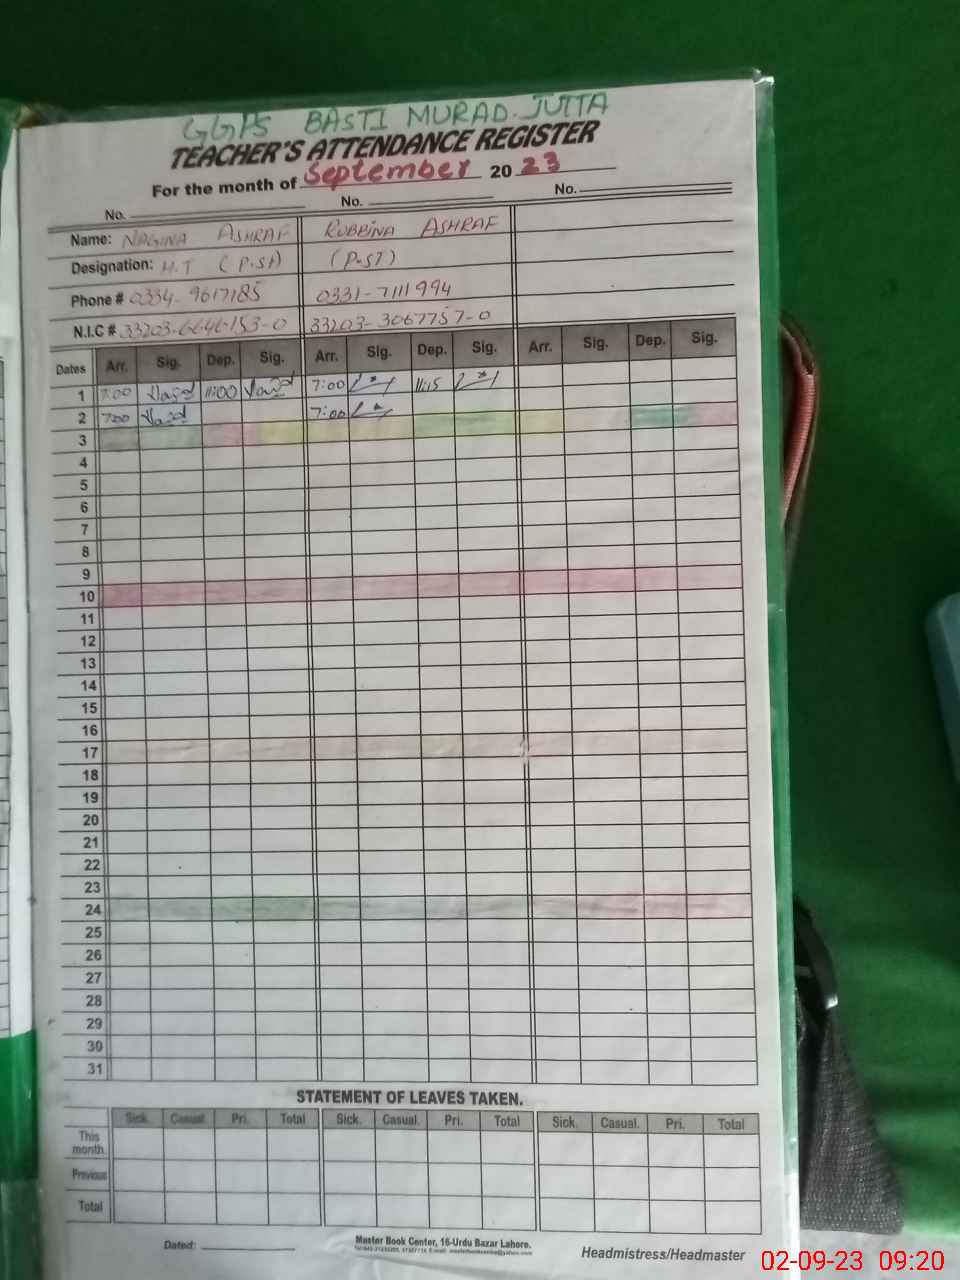 GGPS BASTI MURAD JUTTA
TEACHER'S ATTENDANCE REGISTER
For the month of September 20 23
No. No. No.
Name: NAGINA ASHRAF RUBBINA ASHRAF
Designation: H.T (P.ST) (P.ST)
Phone # 0334-9617185 0331-7111994
N.I.C # 33203-6646153-0 33203-3067757-0
Dates Arr. Sig. Dep. Sig. Arr. Sig. Dep. Sig. Arr. Sig. Dep. Sig.
1 7:00 11:00 7:00 11:15
2 7:00 7:00
3
4
5
6
7
8
9
10
11
12
13
14
15
16
17
18
19
20
21
22
23
24
25
26
27
28
29
30
31
STATEMENT OF LEAVES TAKEN.
Sick. Casual. Pri. Total Sick. Casual. Pri. Total Sick. Casual. Pri. Total
This
month.
Previous
Total
Dated:
Master Book Center, 16-Urdu Bazar Lahore.
Headmistress/Headmaster
02-09-23 09:20